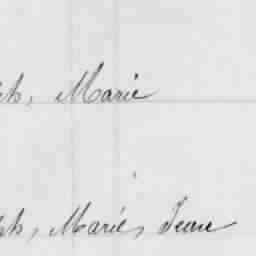 ph, Marie
ph, Marie, Jean